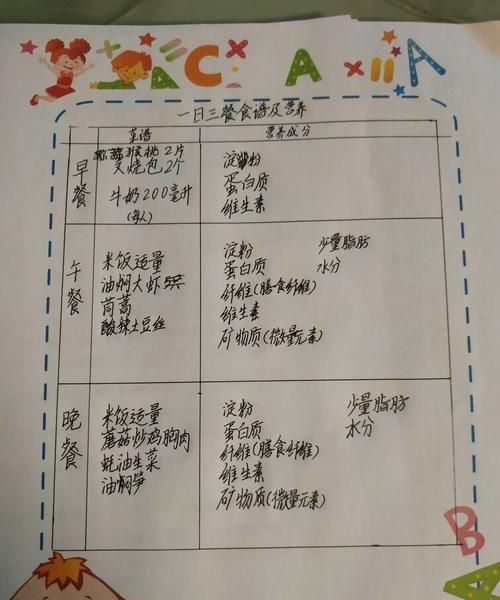 A C A A
一日三餐食谱及营养
菜谱 营养成分
早餐
猕猴桃2片
叉烧包2个
牛奶200毫升
(每人)
淀粉
蛋白质
维生素
午餐
米饭适量
油焖大虾
茼蒿
酸辣土豆丝
淀粉 少量脂肪
蛋白质 水分
纤维(膳食纤维)
维生素
矿物质(微量元素)
晚餐
米饭适量
蘑菇炒鸡胸肉
蚝油生菜
油焖笋
淀粉 少量脂肪
蛋白质 水分
纤维(膳食纤维)
维生素
矿物质(微量元素)
B